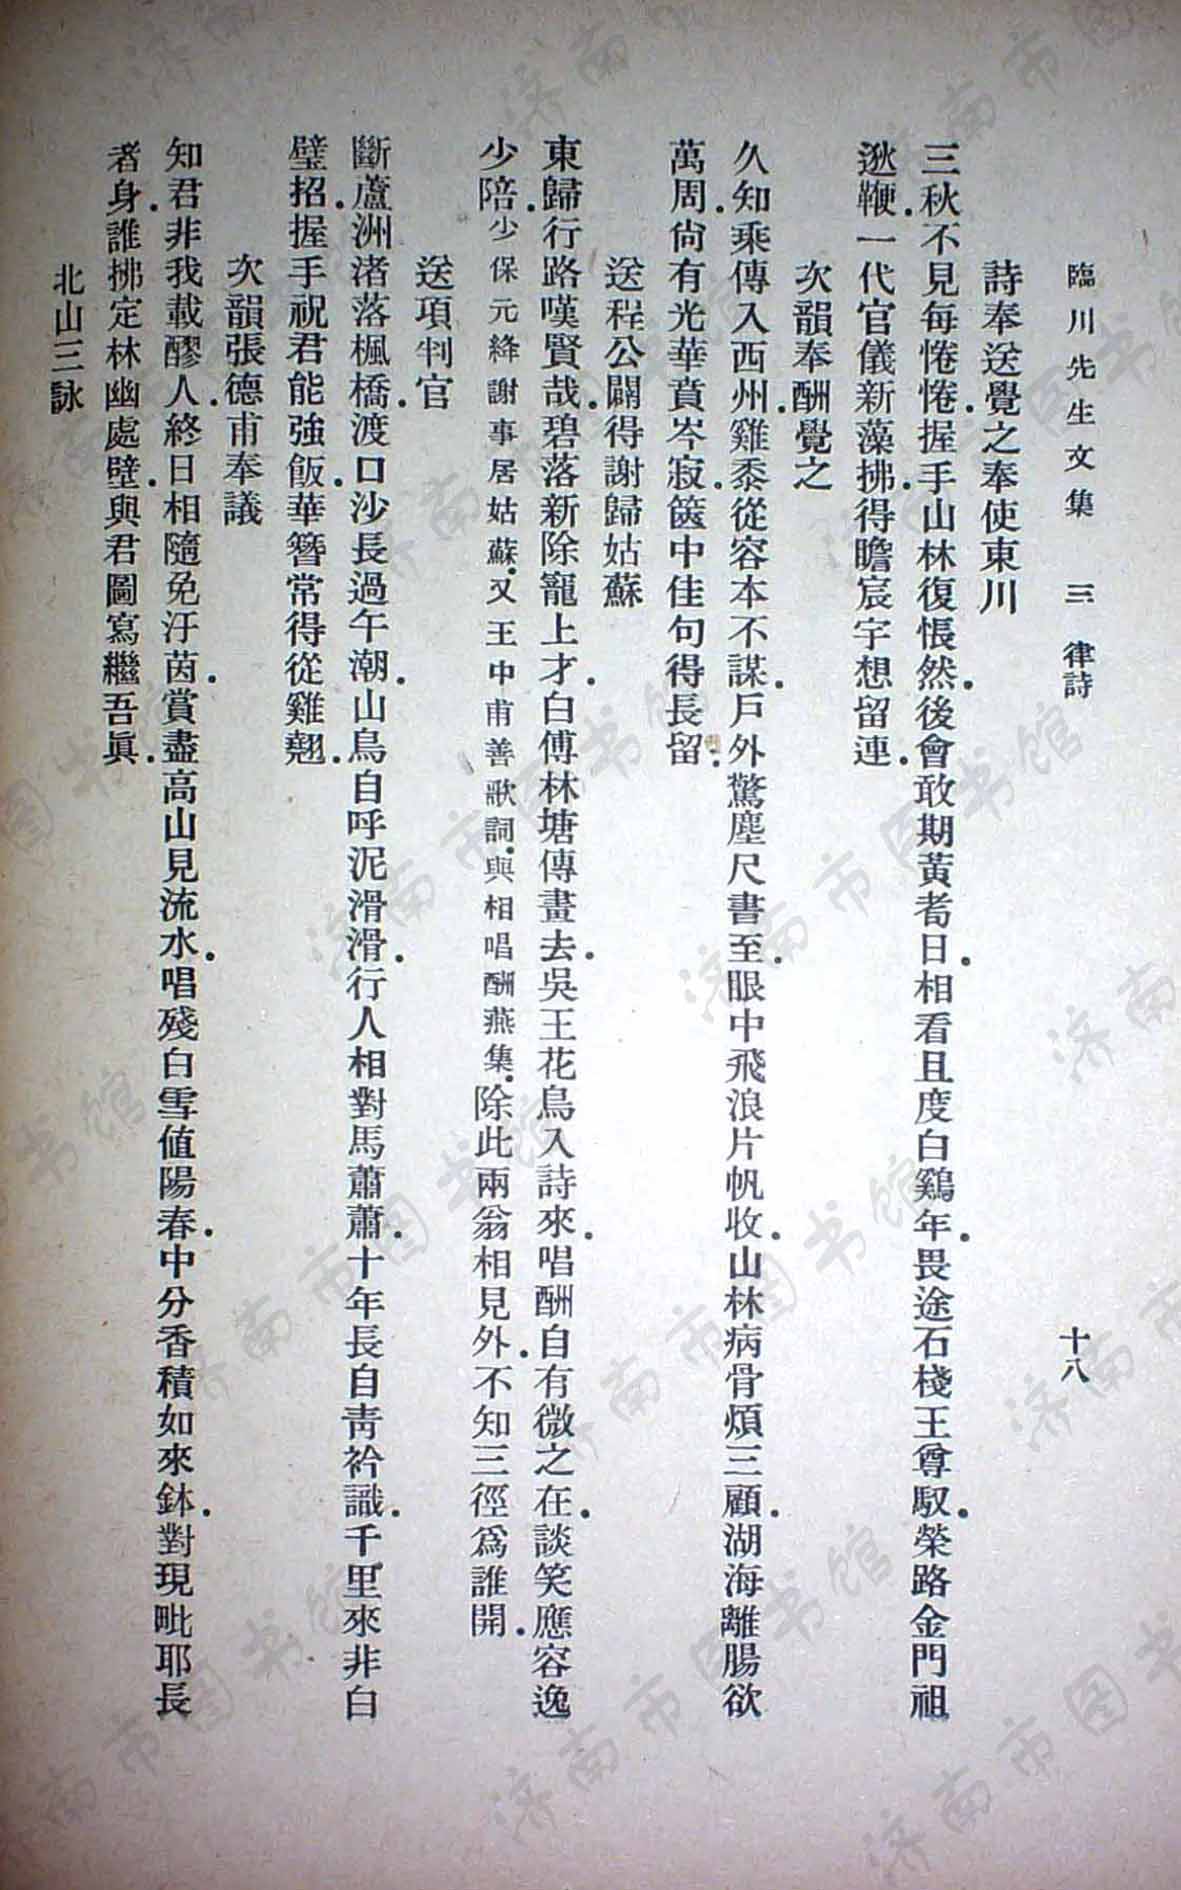 臨川先生文集　三　律詩　十八
詩奉送覺之奉使東川
三秋不見每惓惓．握手山林復悵然．後會敢期黃耇日．相看且度白鷄年．畏途石棧王尊馭．榮路金門祖
逖鞭．一代官儀新藻拂．得瞻宸宇想留連．
次韻奉酬覺之
久知乘傳入西州．雞黍從容本不謀．戶外驚塵尺書至．眼中飛浪片帆收．山林病骨煩三顧．湖海離腸欲
萬周．尙有光華賁岑寂．篋中佳句得長留．
送程公闢得謝歸姑蘇
東歸行路嘆賢哉．碧落新除寵上才．白傅林塘傳畫去．吳王花鳥入詩來．唱酬自有微之在．談笑應容逸
少陪．少保元絳謝事居姑蘇．又王中甫善歌詞．與相唱酬燕集．除此兩翁相見外．不知三徑爲誰開．
送項判官
斷蘆洲渚落楓橋．渡口沙長過午潮．山鳥自呼泥滑滑．行人相對馬蕭蕭．十年長自靑衿識．千里來非白
璧招．握手祝君能強飯．華簪常得從雞翹．
次韻張德甫奉議
知君非我載醪人．終日相隨免汙茵．賞盡高山見流水．唱殘白雪値陽春．中分香積如來鉢．對現毗耶長
者身．誰拂定林幽處壁．與君圖寫繼吾眞．
北山三詠
济南市图书馆